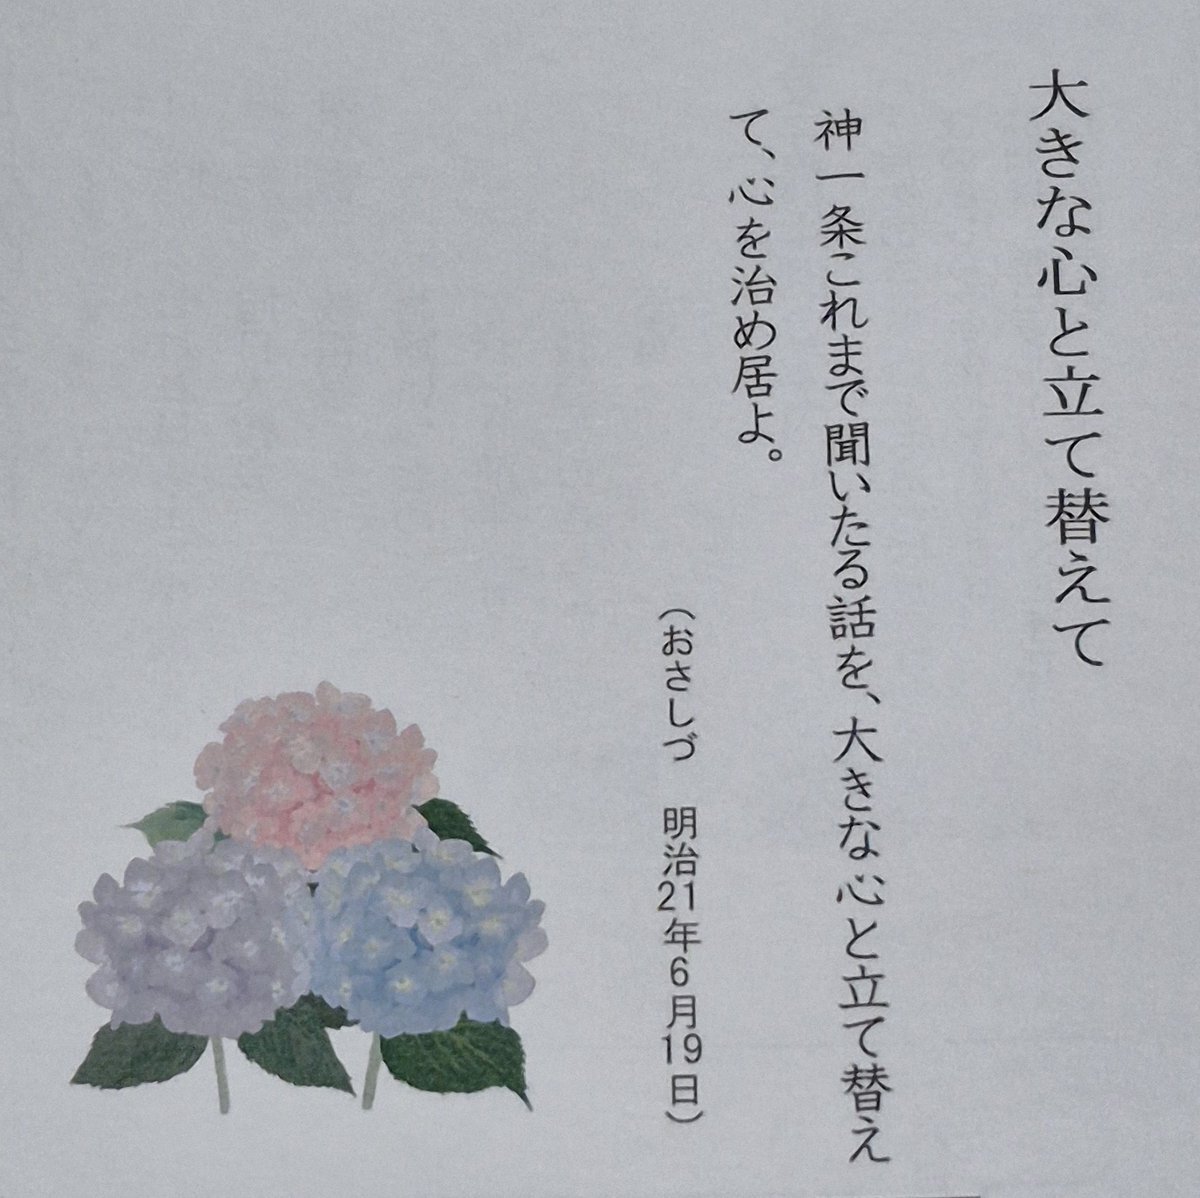 大きな心と立て替えて
神一条これまで聞いたる話を、大きな心と立て替え
て、心を治め居よ。
（おさしづ　明治21年6月19日）